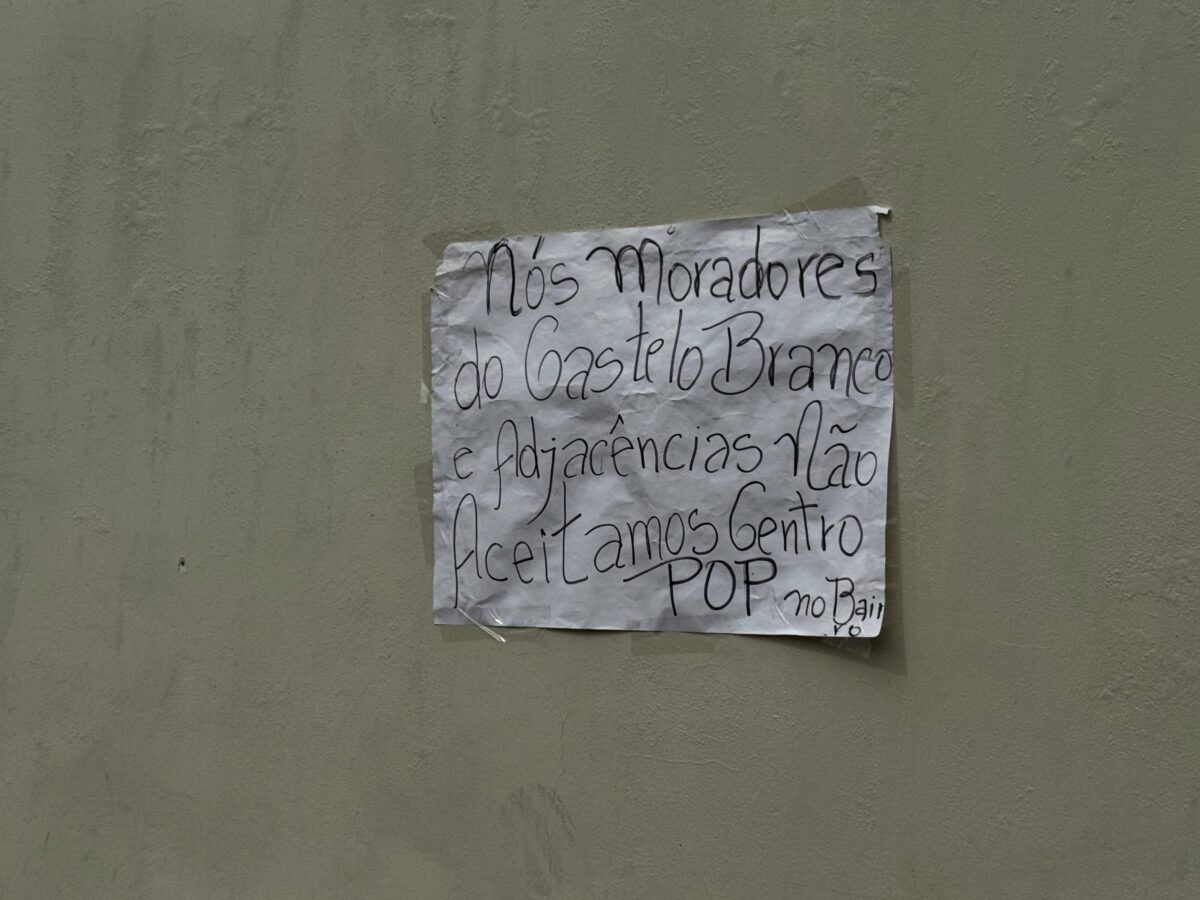 Nós Moradores
do Castelo Branco
e Adjacências Não
Aceitamos Centro
POP no Bair
ro